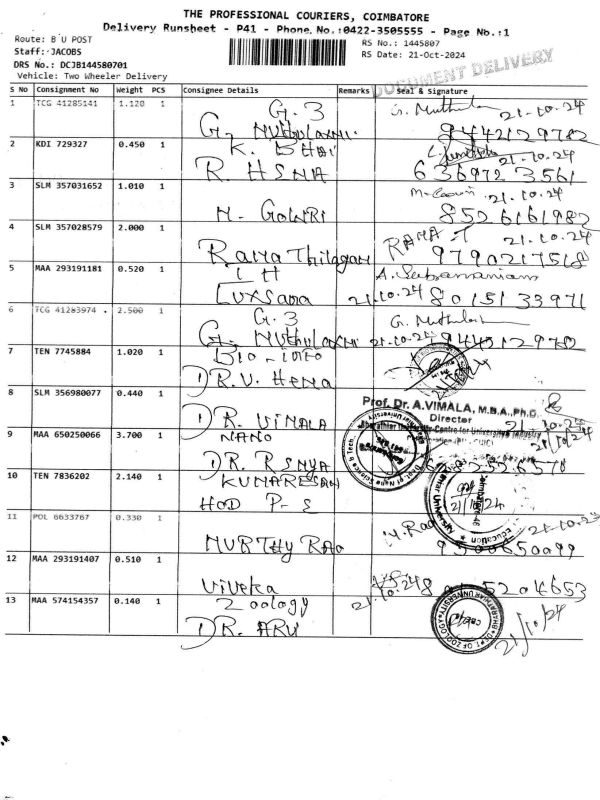 THE PROFESSIONAL COURIERS, COIMBATORE
Delivery Runsheet - P41 - Phone No.:0422-3505555 - Page Nb.:1
Route: B U POST
RS No.: 1445807
Staff: JACOBS
RS Date: 21-Oct-2024
DRS No.: DCJB144580701
DOCUMENT DELIVERY
Vehicle: Two Wheeler Delivery
S No Consignment No Weight PCS Consignee Details Remarks Seal & Signature
1 TCG 41285141 1.120 1 G. 3 G. Muthulaxmi 21-10-24
9442129782
2 KDI 729327 0.450 1 K. BHAI R. HSNA 21-10-24
636972 3561
3 SLM 357031652 1.010 1 M. GOWRI 21-10-24
8526161982
4 SLM 357028579 2.000 1 Rama Thilagam RAMA T 21-10-24
9790217518
5 MAA 293191181 0.520 1 Luxsama A. Subramaniam
21-10-24 8015133971
6 TCG 41283974 2.500 1 G. 3 G. Muthulaxmi G. Muthulax
21-10-24
7 TEN 7745884 1.020 1 BIO-info DR.U. Hema
8 SLM 356980077 0.440 1 DR. VIMALA
Prof. Dr. A.VIMALA, M.B.A., Ph.D.
Director
21-10-24
Bharathiar University Centre for University Industry
9 MAA 650250066 3.700 1 NANO DR. RSNYA
21/10/24
10 TEN 7836202 2.140 1 KUMARESAN HOD P-E
21/10/24
11 POL 6633767 0.330 1 MURTHY RAO M. Rao 21-10-24
9500650099
12 MAA 293191407 0.510 1 Viveka 21-10-24
5204653
13 MAA 574154357 0.140 1 Zoology DR. ARU 21/10/24